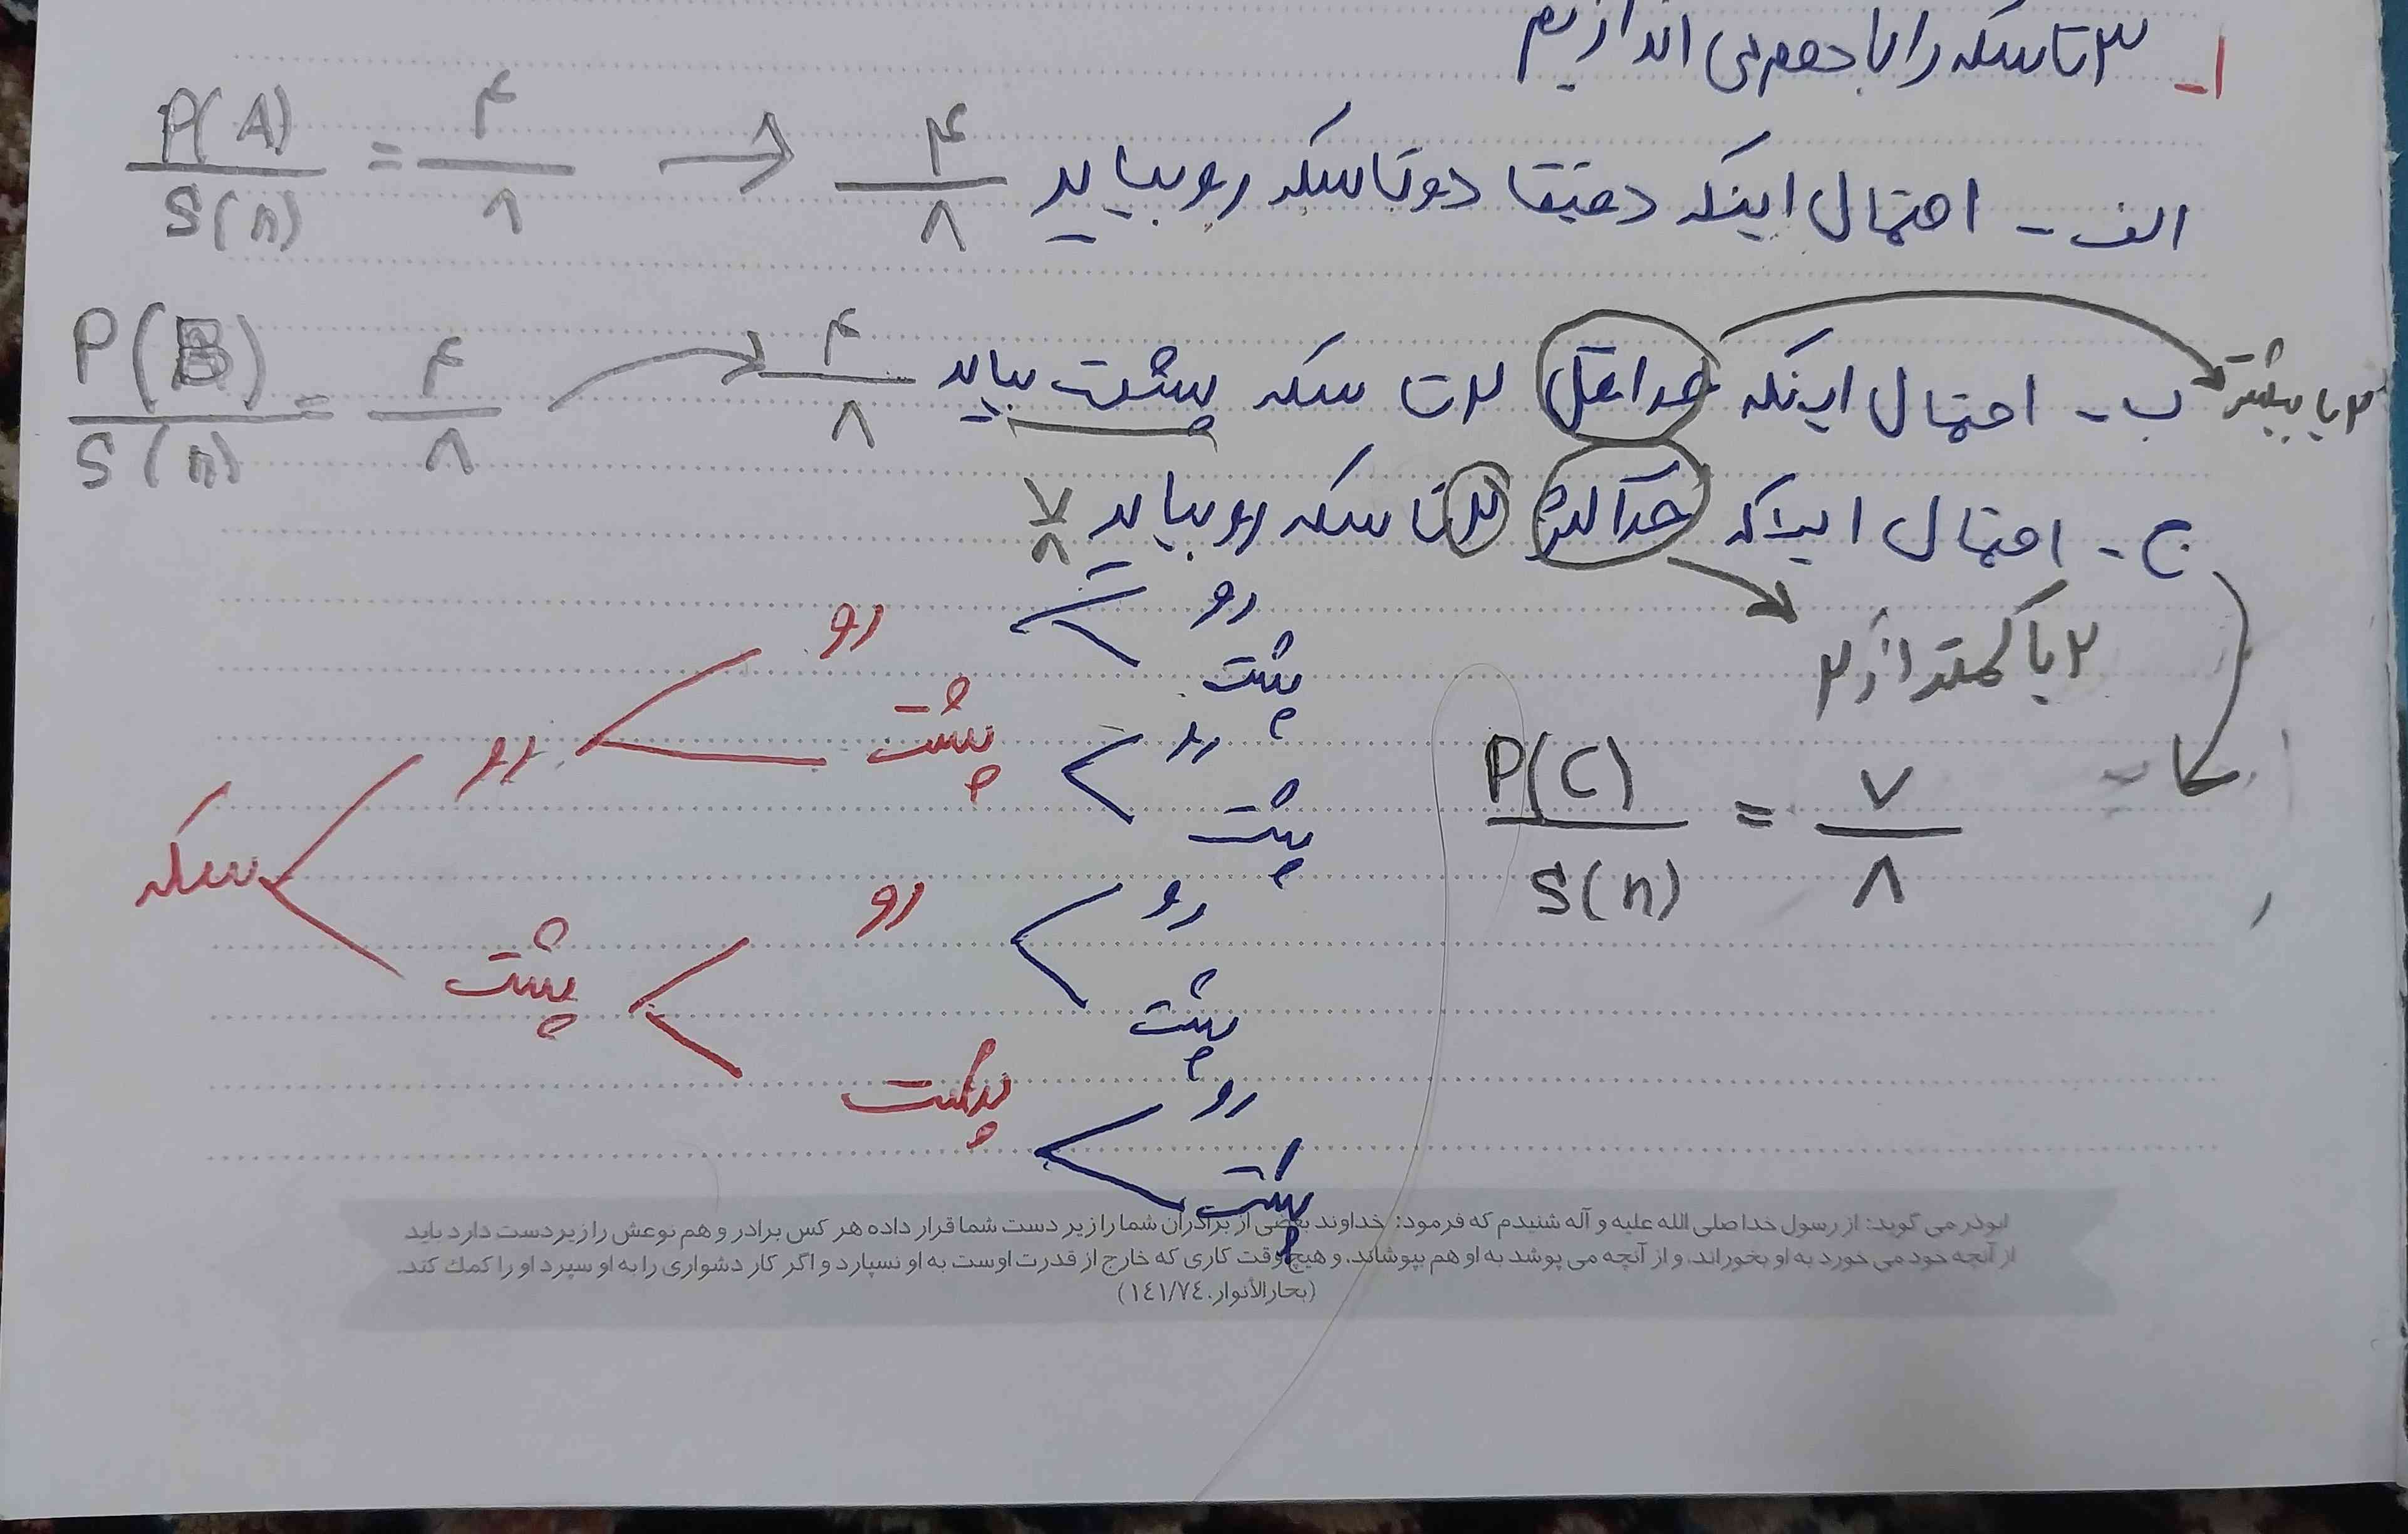 ۱- ۳ تا سکه را با هم می اندازیم
الف - احتمال اینکه دقیقا دوتا سکه رو بیاید ۴/۸ → P(A)/S(n) = ۴/۸
ب - احتمال اینکه حداقل ۲ تا سکه پشت بیاید ۴/۸ P(B)/S(n) = ۴/۸
۲ یا بیشتر
ج - احتمال اینکه حداکثر ۲ تا سکه رو بیاید ۷/۸
۲ یا کمتر از ۲
P(C)/S(n) = ۷/۸
سکه
رو
پشت
رو
پشت
رو
پشت
رو
پشت
رو
پشت
رو
پشت
رو
پشت
ابوذر می گوید: از رسول خدا صلی الله علیه و آله شنیدم که فرمود: خداوند بعضی از برادران شما را زیر دست شما قرار داده هر کس برادر و هم نوعش را زیر دست دارد باید
از آنچه خود می خورد به او بخوراند، و از آنچه می پوشد به او هم بپوشاند، و هیچ وقت کاری که خارج از قدرت اوست به او نسپارد و اگر کار دشواری را به او سپرد او را کمك کند.
(بحارالأنوار، ١٤١/٧٤)